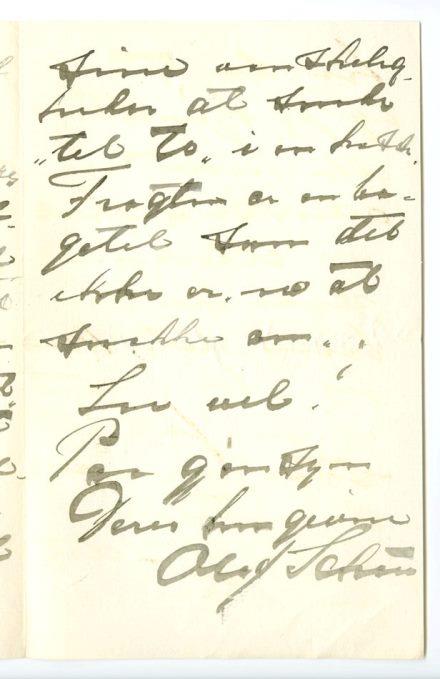 sine vanskelig-
heder at sende
"tel To" i en kasse.
Fragten er en ba-
gatel som det
ikke er no at
snakke om..
Lev vel!
Paa gjensyn
Deres hengivne
Olaf Schou